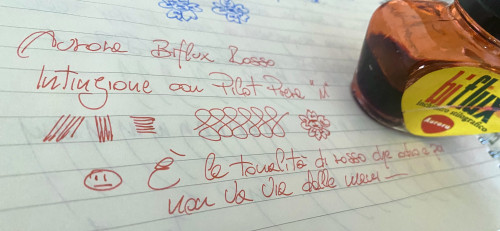 Aurora Biflux Rosso
Intinzione con Pilot Prera "M"
È la tonalità di rosso che
non va via dalle mani
biflux
inchiostro stilografico
Aurora